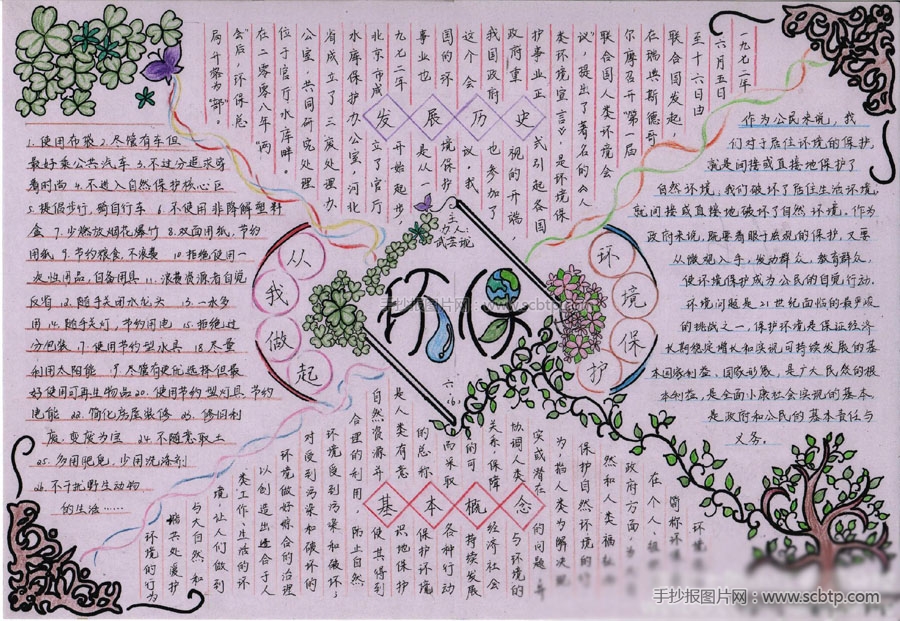 一九七二年
六月五日
至十六日由
联合国发起，
在瑞典斯德哥
尔摩召开“第一届
联合国人类环境会
议”，提出了著名的《人
类环境宣言》，是环境保
护事业正式引起各国
政府重视的开端，
我国政府也参加了
这个会议。我
国的环境保护
事业也是从一
九七二年开始起步，
北京市成立了官厅
水库保护办公室，河北
省成立了三废处理办
公室，共同研究处理
位于官厅水库畔。
在二零零八年“两
会”后，环保总
局升格为“部”。
发展历史
1.使用布袋 2.尽管有车但
最好乘公共汽车 3.不过分追求穿
着时尚 4.不进入自然保护核心区
5.提倡步行，骑自行车 6.不使用非降解塑料
盒 7.少燃放烟花爆竹 8.双面用纸，节约
用纸 9.节约粮食，不浪费 10.拒绝使用一
次性用品，自备用具 11.浪费资源者自觉
反省 12.随手关闭水龙头 13.一水多
用 14.随手关灯，节约用电 15.拒绝过
分包装 17.使用节约型水具 18.尽量
利用太阳能 19.尽管有更优选择但最
好使用可再生物品 20.使用节约型灯具 节约
电能 22.简化房屋装修 23.修旧利
废，变废为宝 24.不随意取土
25.多用肥皂，少用洗涤剂
26.不干扰野生动物
的生活……
从我做起
主办人：
武芸说
环保
六.16.
环境保护
作为公民来说，我
们对于居住环境的保护，
就是间接或直接地保护了
自然环境；我们破坏了居住生活环境，
就间接或直接地破坏了自然环境。作为
政府来说，既要着眼于宏观的保护，又要
从微观入手，发动群众，教育群众，
使环境保护成为公民的自觉行动。
环境问题是21世纪面临的最严峻
的挑战之一，保护环境是保证经济
长期稳定增长和实现可持续发展的基
本国家利益，国家形象，是广大民众的根
本利益，是全面小康社会实现的基础，
是政府和公民的基本责任与
义务。
基本概念
环境
简称环
在个人、
政府方面，为
然和人类福
保护自然环境的行
为，指人类为解决现
实或潜在的问题，
协调人类与环境的
关系，保障经济社会
的可持续发展
而采取各种行动
的总称保护环境
是人类有意识地保护
自然资源并使其得到
合理的利用，防止自然
环境受到污染和破坏；
对受到污染和破坏的
环境做好综合的治理
以创造出适合于人
类工作、生活的环
境，让人们做到
与大自然和
谐共处爱护
环境的行为
手抄报图片网：www.scbtp.com
手抄报图片网：www.scbtp.com